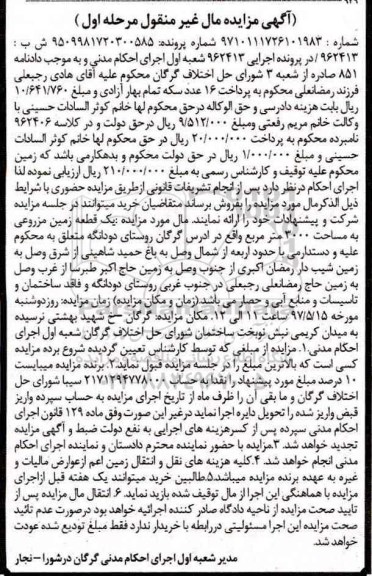 (آگهی مزایده مال غیر منقول مرحله اول)
شماره : ۹۷۱۰۱۱۱۷۲۶۱۰۱۹۸۳ شماره پرونده: ۹۵۰۹۹۸۱۷۲۰۳۰۰۵۸۵ ش ب :
۹۶۲۴۱۳ / در پرونده اجرایی ۹۶۲۴۱۳ شعبه اول اجرای احکام مدنی و به موجب دادنامه
۸۵۱ صادره از شعبه ۳ شورای حل اختلاف گرگان محکوم علیه آقای هادی رجبعلی
فرزند رمضانعلی محکوم به پرداخت ۱۶ عدد سکه تمام بهار آزادی و مبلغ ۱۰/۶۴۱/۷۶۰
ریال بابت هزینه دادرسی و حق الوکاله درحق محکوم لها خانم کوثر السادات حسینی با
وکالت خانم مریم رفعتی ومبلغ ۹/۵۱۲/۰۰۰ ریال درحق دولت و در کلاسه ۹۶۲۴۰۶
نامبرده محکوم به پرداخت ۲۰/۰۰۰/۰۰۰ ریال در حق محکوم لها خانم کوثر السادات
حسینی و مبلغ ۱/۰۰۰/۰۰۰ ریال در حق دولت محکوم و بدهکارمی باشد که زمین
محکوم علیه توقیف و کارشناس رسمی به مبلغ ۲۱۰/۰۰۰/۰۰۰ ریال ارزیابی نموده لذا
اجرای احکام درنظر دارد پس از انجام تشریفات قانونی ازطریق مزایده حضوری با شرایط
ذیل الذکرمال مورد مزایده را بفروش برساند متقاضیان خرید میتوانند در جلسه مزایده
شرکت و پیشنهادات خود را ارائه نمایند. مال مورد مزایده :یک قطعه زمین مزروعی
به مساحت ۳۰۰۰ متر مربع واقع در ادرس گرگان روستای دودانگه متعلق به محکوم
علیه و دستدارمی با حدود اربعه از شمال وصل به باغ حمید شاهینی از شرق وصل به
زمین شیب دار رمضان اکبری از جنوب وصل به زمین حاج اکبر طبرسا از غرب وصل
به زمین حاج رمضانعلی رجبعلی در جنوب غربی روستای دودانگه و فاقد ساختمان و
تاسیسات و منابع آبی و حصار می باشد (زمان و مکان مزایده) زمان مزایده: روزدوشنبه
مورخه ۹۷/۵/۱۵ ساعت ۱۱ الی ۱۲. مکان مزایده: گرگان –خ شهید بهشتی نرسیده
به میدان کریمی نبش نوبخت ساختمان شورای حل اختلاف گرگان شعبه اول اجرای
احکام مدنی ۱. مزایده از مبلغی که توسط کارشناس تعیین گردیده شروع برده مزایده
کسی است که بالاترین مبلغ را در جلسه مزایده قبول نماید.۲. برنده مزایده میبایست
۱۰ درصد مبلغ مورد پیشنهاد را نقدا به حساب سیبا شورای حل
اختلاف گرگان و ما بقی آن را ظرف ماه از تاریخ اجرای مزایده به حساب سپرده واریز
قبض واریز شده را تحویل دایره اجرا نماید درغیر این صورت وفق ماده ۱۲۹ قانون اجرای
احکام مدنی سپرده پس از کسرهزینه های اجرایی به نفع دولت ضبط و آگهی مزایده
تجدید خواهد شد. ۳.مزایده با حضور نماینده محترم دادستان و نماینده اجرای احکام
مدنی انجام خواهد شد. ۴.کلیه هزینه های نقل و انتقال زمین اعم ازعوارض مالیات و
غیره به عهده برنده مزایده میباشد.۵.طالبین خرید میتوانند یک هفته قبل ازاجرای
مزایده با هماهنگی این اجرا از مال توقیف شده بازید نمایند. ۶. انتقال مال مزایده پس از
تایید صحت مزایده از ناحیه دادگاه صادر کننده اجرائیه خواهد بود درصورت عدم تائید
صحت مزایده این اجرا مسئولیتی دررابطه با خریدار ندارد فقط مبلغ تودیع شده عودت
خواهد شد.
مدیر شعبه اول اجرای احکام مدنی گرگان درشورا – نجار